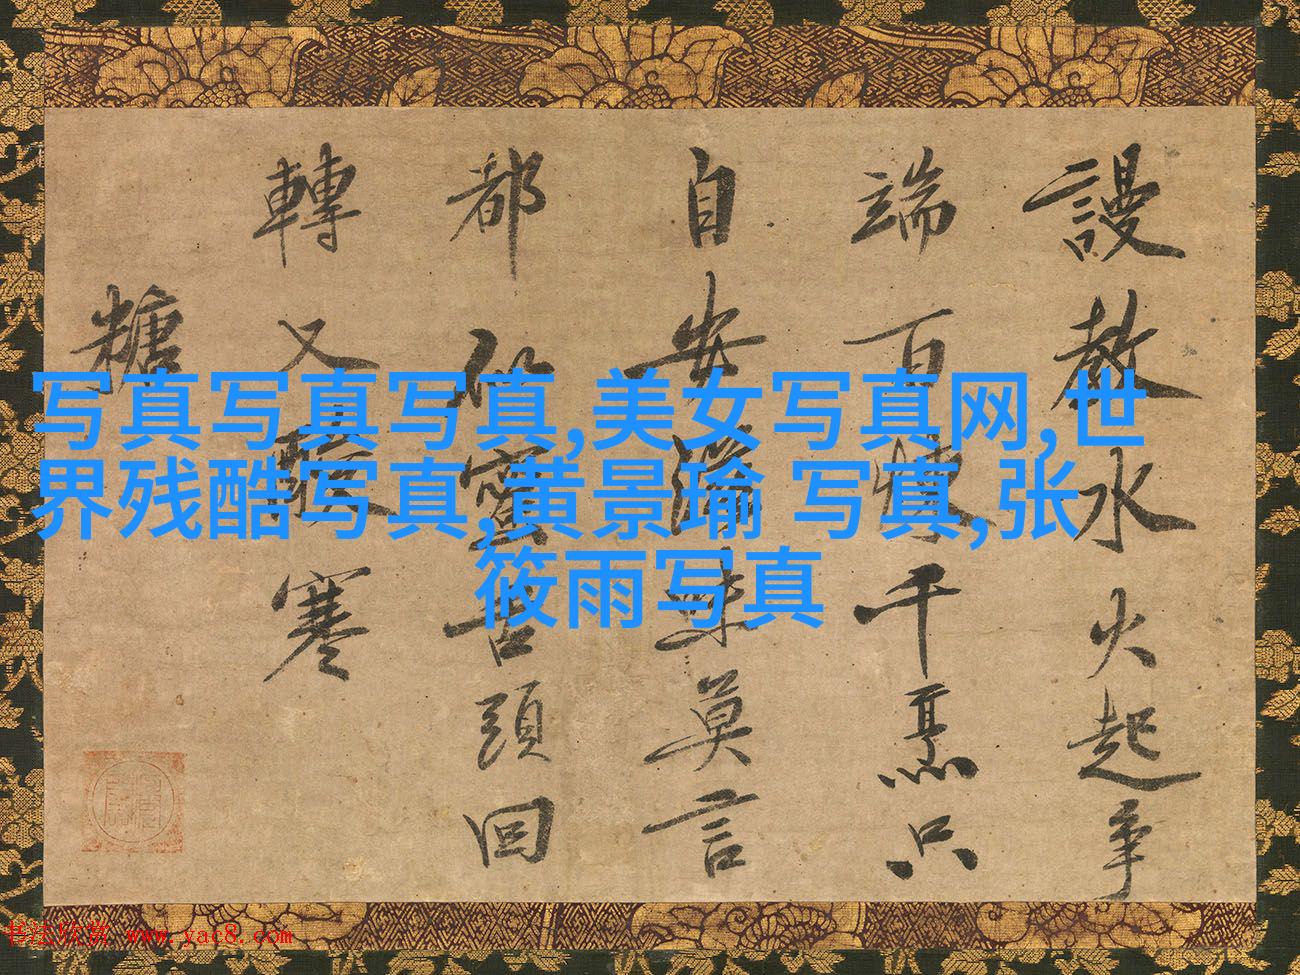 謾教水火起爭
端百煉千烹只
自安滋味莫言
都似蜜舌頭回
轉又酸寒
糖
写真写真写真,美女写真网,世
界残酷写真,黄景瑜 写真,张
筱雨写真
书法欣赏 www.yac8.com